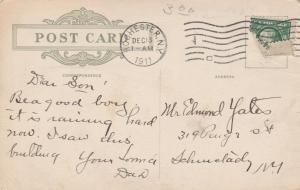 3.00
POST CARD
ROCHESTER, N.Y.
DEC 13
1-AM
1911
CORRESPONDENCE
ADDRESS
Dear Son
Be a good boy
it is raining hard
now. I saw this
building Your
Dad
Mr Edmond Yates
319 St
NY